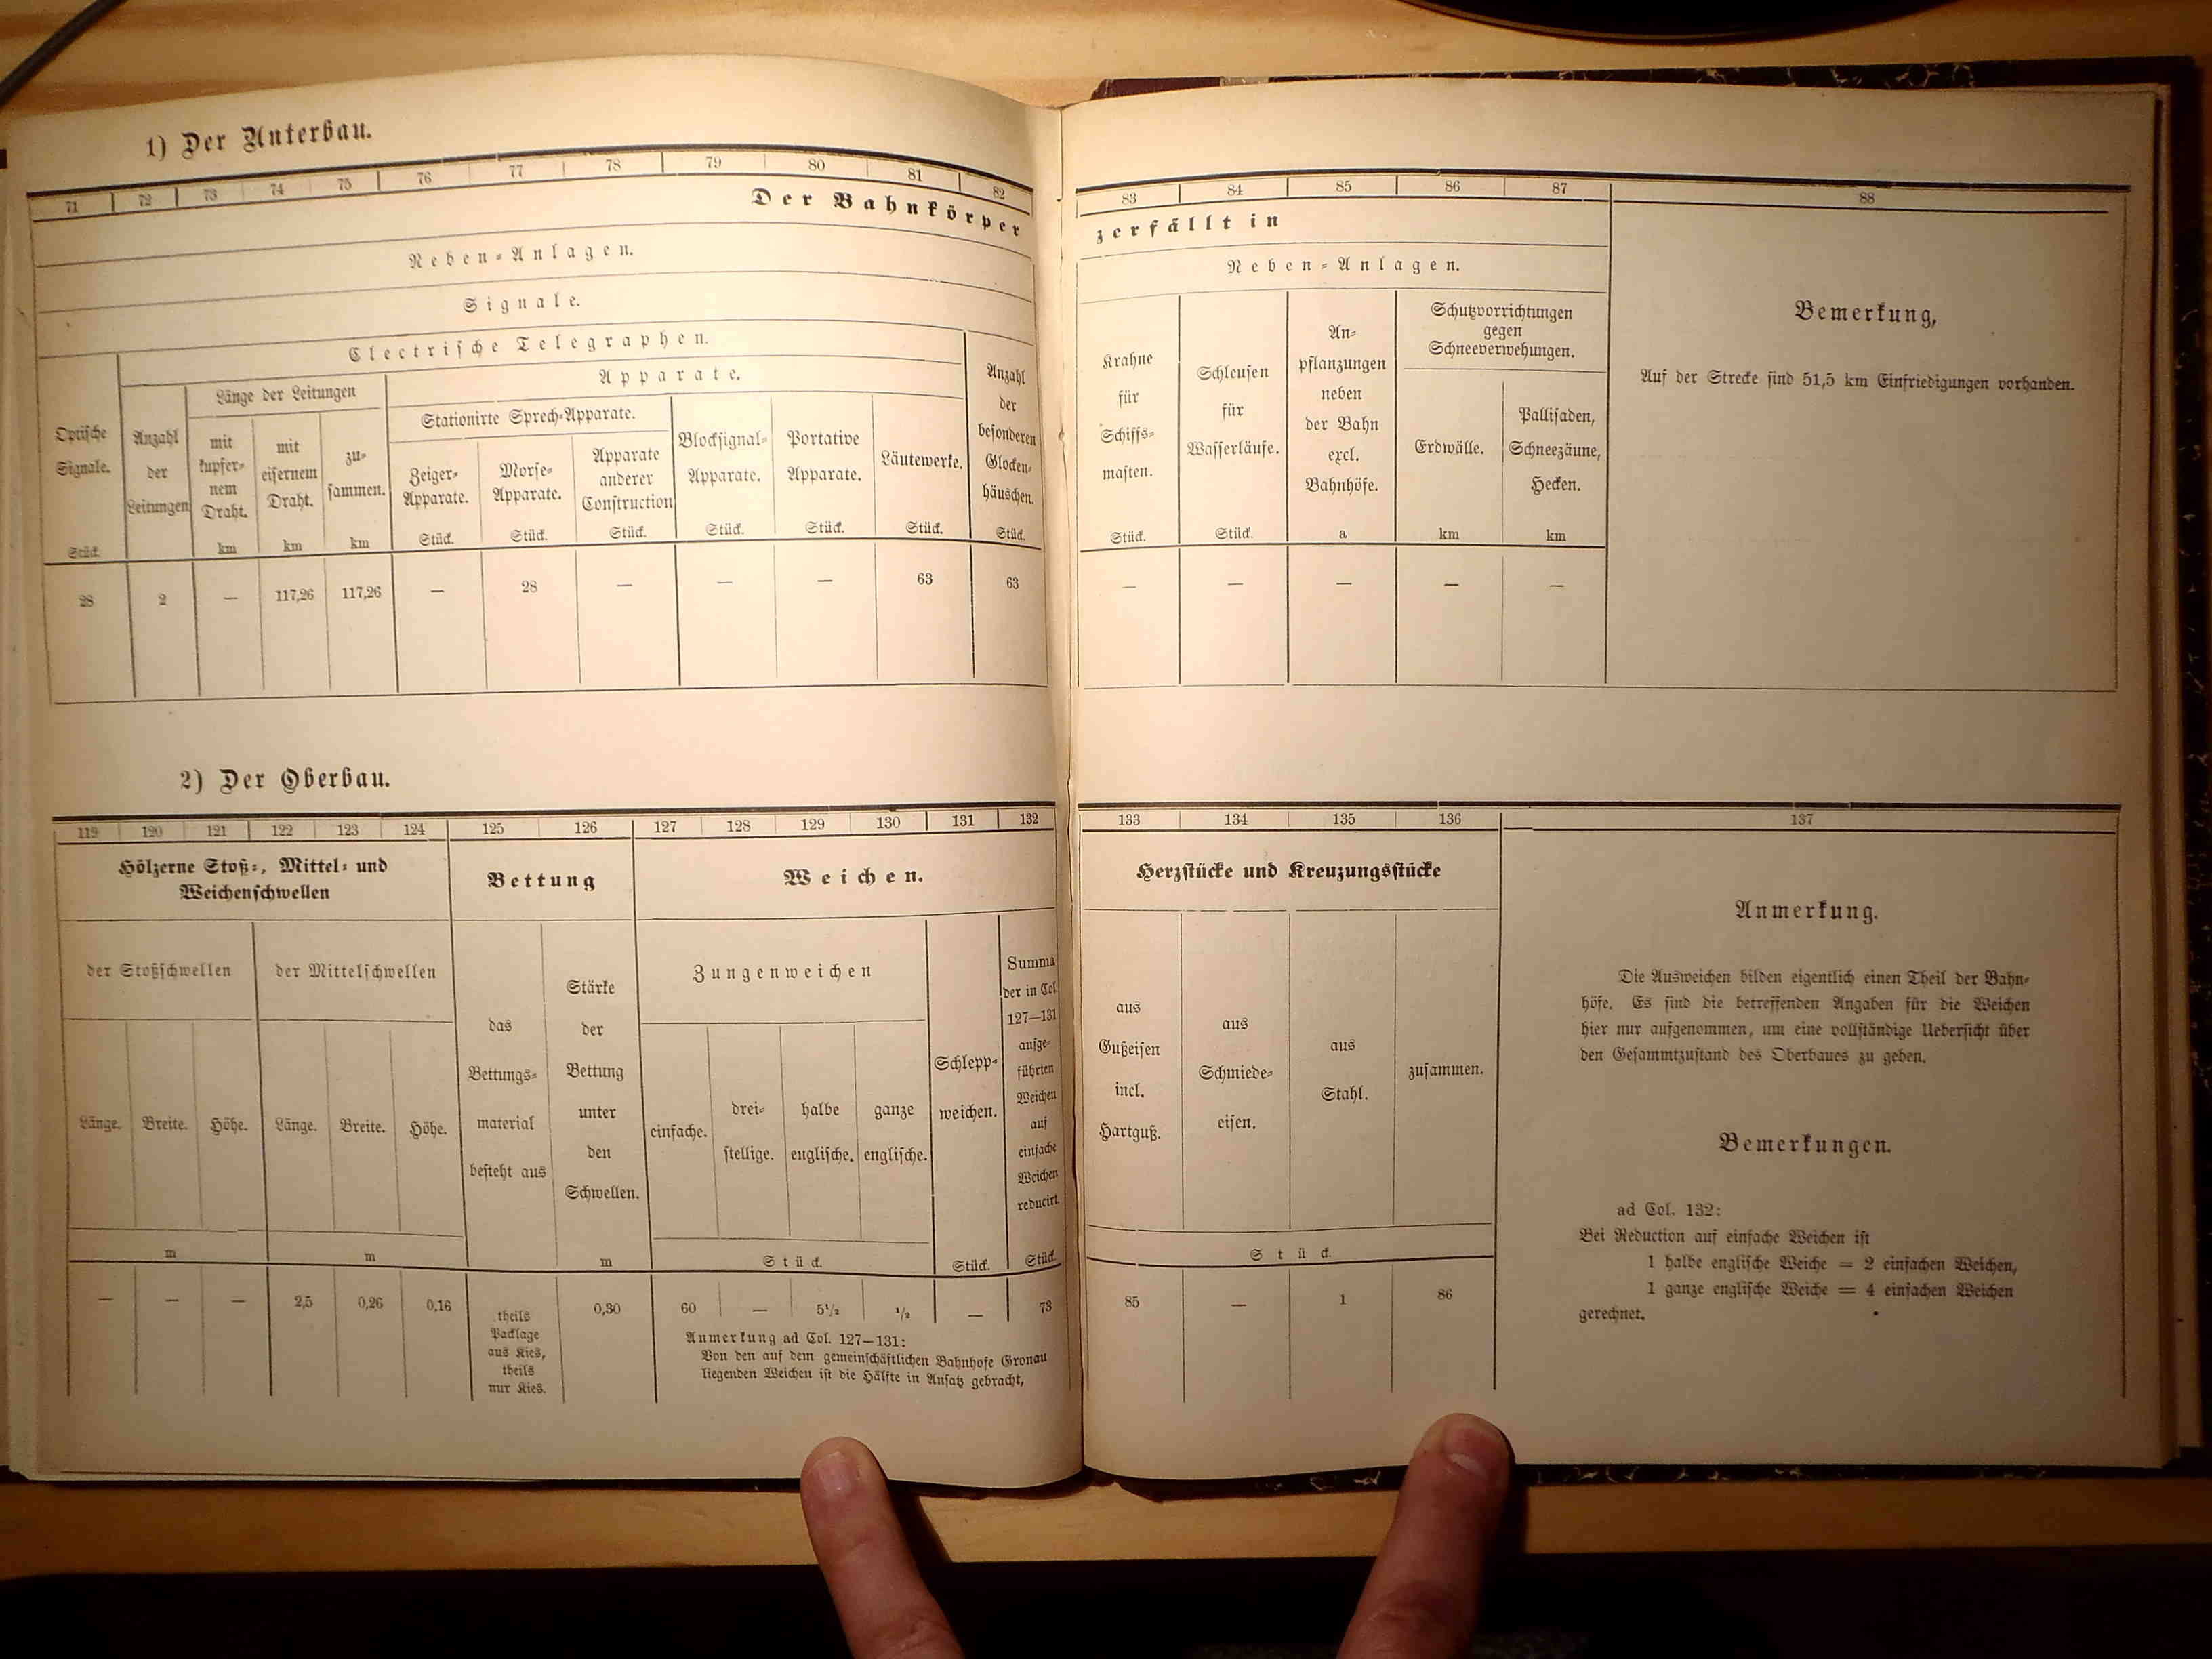 1) Der Unterbau.
71 72 73 74 75 76 77 78 79 80 81 82
Der Bahnkörper
Neben-Anlagen.
Signale.
Electrische Telegraphen.
Länge der Leitungen
Apparate.
Stationirte Sprech-Apparate.
Optische
Signale.
Stück.
Anzahl
der
Leitungen
mit
kupfer-
nem
Draht.
km
mit
eisernem
Draht.
km
zu-
sammen.
km
Zeiger-
Apparate.
Stück.
Morse-
Apparate.
Stück.
Apparate
anderer
Construction
Stück.
Blocksignal-
Apparate.
Stück.
Portative
Apparate.
Stück.
Läutewerke.
Stück.
Anzahl
der
besonderen
Glocken-
häuschen.
Stück.
28 2 — 117,26 117,26 — 28 — — — 63 63
83 84 85 86 87 88
zerfällt in
Neben-Anlagen.
Krahne
für
Schiffs-
masten.
Stück.
Schleusen
für
Wasserläufe.
Stück.
An-
pflanzungen
neben
der Bahn
excl.
Bahnhöfe.
a
Schutzvorrichtungen
gegen
Schneeverwehungen.
Erdwälle.
km
Pallisaden,
Schneezäune,
Hecken.
km
— — — — —
Bemerkung,
Auf der Strecke sind 51,5 km Einfriedigungen vorhanden.
2) Der Oberbau.
119 120 121 122 123 124 125 126 127 128 129 130 131 132
Hölzerne Stoß-, Mittel- und
Weichenschwellen
Bettung
Weichen.
der Stoßschwellen
der Mittelschwellen
Länge. Breite. Höhe. Länge. Breite. Höhe.
m m
das
Bettungs-
material
besteht aus
Stärke
der
Bettung
unter
den
Schwellen.
m
Zungenweichen
einfache.
drei-
stellige.
halbe
englische.
ganze
englische.
Stück.
Schlepp-
weichen.
Stück.
Summa
der in Col.
127—131
aufge-
führten
Weichen
auf
einfache
Weichen
reducirt.
Stück.
— — — 2,5 0,26 0,16
theils
Packlage
aus Kies,
theils
nur Kies.
0,30 60 — 5½ ½ — 73
Anmerkung ad Col. 127—131:
Von den auf dem gemeinschäftlichen Bahnhofe Gronau
liegenden Weichen ist die Hälfte in Ansatz gebracht,
133 134 135 136 137
Herzstücke und Kreuzungsstücke
aus
Gußeisen
incl.
Hartguß.
aus
Schmiede-
eisen.
aus
Stahl.
zusammen.
Stück.
85 — 1 86
Anmerkung.
Die Ausweichen bilden eigentlich einen Theil der Bahn-
höfe. Es sind die betreffenden Angaben für die Weichen
hier nur aufgenommen, um eine vollständige Uebersicht über
den Gesammtzustand des Oberbaues zu geben.
Bemerkungen.
ad Col. 132:
Bei Reduction auf einfache Weichen ist
1 halbe englische Weiche = 2 einfachen Weichen,
1 ganze englische Weiche = 4 einfachen Weichen
gerechnet.